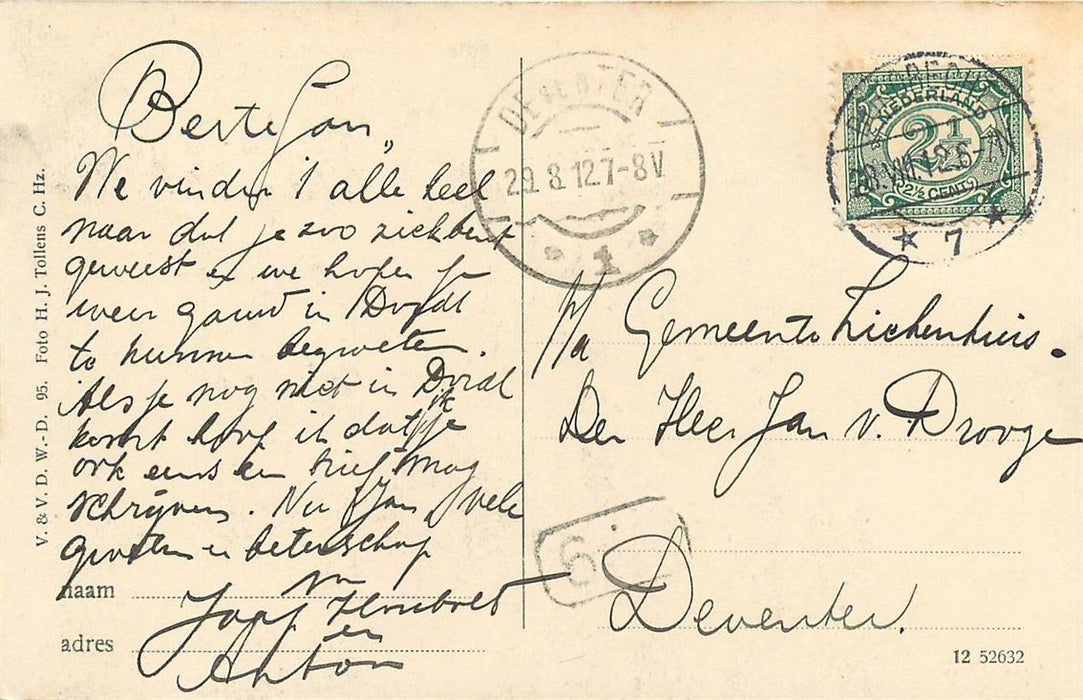 Beste Jan,
We vinden 't alle heel
naar dat je zoo ziek bent
geweest en we hopen je
weer gauw in Dordt
te kunnen begroeten.
Als je nog niet in Dordt
komt hoop ik dat je
ook eens een brief mag
schrijven. Nu Jan vele
groeten en beterschap
van
Jaap
en
Anton
naam
adres
V. & V. D. W.-D. 95. Foto H. J. Tollens C. Hz.
DEVENTER
29.8.12 7-8V
1
NEDERLAND
2½
2½ CENT
7
6
p/a Gemeente Ziekenhuis.
Den Heer Jan v. Drooge
Deventer.
12 52632